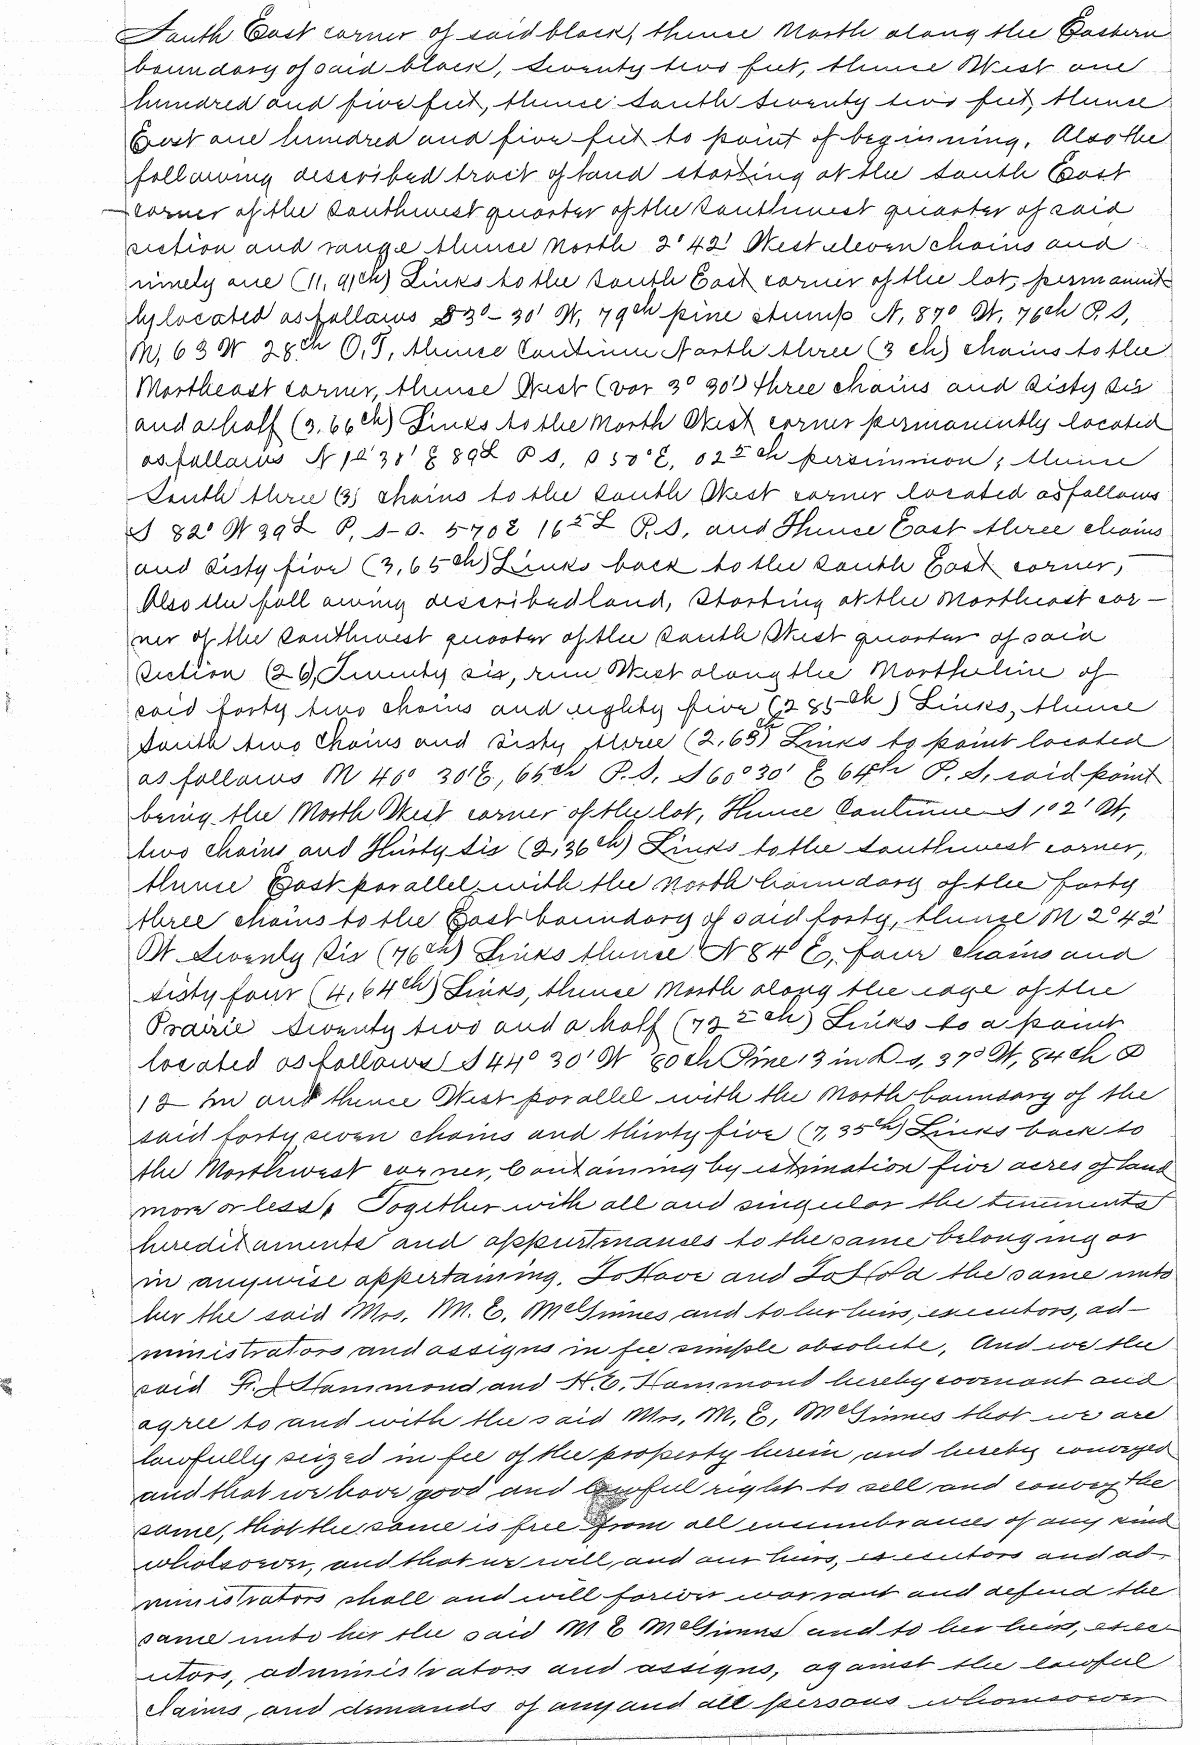 South East corner of said block, thense North along the Eastern
boundary of said block, seventy two feet, thense West one
hundred and five feet, thense South seventy two feet, thense
East one hundred and five feet to point of beginning. Also the
following described tract of land starting at the South East
corner of the Southwest quarter of the Southwest quarter of said
section and range thense North 2° 42' West eleven chains and
ninety one (11,91ch) Links to the South East corner of the lot, permanent-
ly located as follows S 30- 30' W, 79ch pine stump N, 87° W, 76ch P.S,
M, 63 W 28ch O.T, thense Continue North three (3 ch) chains to the
Northeast corner, thense West (var 3° 30') three chains and sixty six
and a half (3.66ch) Links to the North West corner permanently located
as follows N 1° 30' E 89L P S, S 50° E, 02 5 ch persimmon; thense
South three (3) chains to the South West corner located as follows
S 82° W 39L P. S-S. 570E 16 5 L P.S, and Thense East three chains
and sixty five (3,65ch) Links back to the South East corner,
Also the foll owing described land, Starting at the Northeast cor-
ner of the Southwest quarter of the South West quarter of said
section (26) Twenty six, run West along the North line of
said forty two chains and eighty five (2 85ch) Links, thense
South two Chains and sixty three (2,63ch) Links to point located
as follows N 40° 30'E, 65ch P.S, S 60° 30' E 64ch P.S, said point
being the North West corner of the lot, Thense Continue S 1° 2' W,
two chains and Thirty Six (2,36ch) Links to the Southwest corner,
thense East parallel with the North boundary of the forty
three chains to the East boundary of said forty, thense N 2° 42'
W Seventy Six (76ch) Links thense N 84° E, four chains and
sixty four (4,64ch) Links, thense North along the edge of the
Prairie seventy two and a half (72 5 ch) Links to a point
located as follows S 44° 30' W 80ch Pine 13 in D S, 37° W, 84ch P
12 in and thence West parallel with the North boundary of the
said forty seven chains and thirty five (7,35ch) Links back to
the Northwest corner, Containing by estimation five acres of land
more or less, Together with all and singular the tenements
hereditaments and appurtenanses to the same belonging or
in anywise appertaining. To Have and To Hold the same unto
her the said Mrs. M. E. McGinnes and to her heirs, executors, ad-
ministrators and assigns in fee simple absolute. And we the
said F. J Hammond and H. E. Hammond hereby covenant and
agree to and with the said Mrs. M. E. McGinnes that we are
lawfully seized in fee of the property herein and hereby conveyed
and that we have good and lawful right to sell and convey the
same, that the same is free from all encumbrances of any kind
whatsoever, and that we will, and our heirs, executors and ad-
ministrators shall and will forever warrant and defend the
same unto her the said M E McGinnes and to her heirs, exec-
utors, administrators and assigns, against the lawful
claims, and demands of any and all persons whomsoever